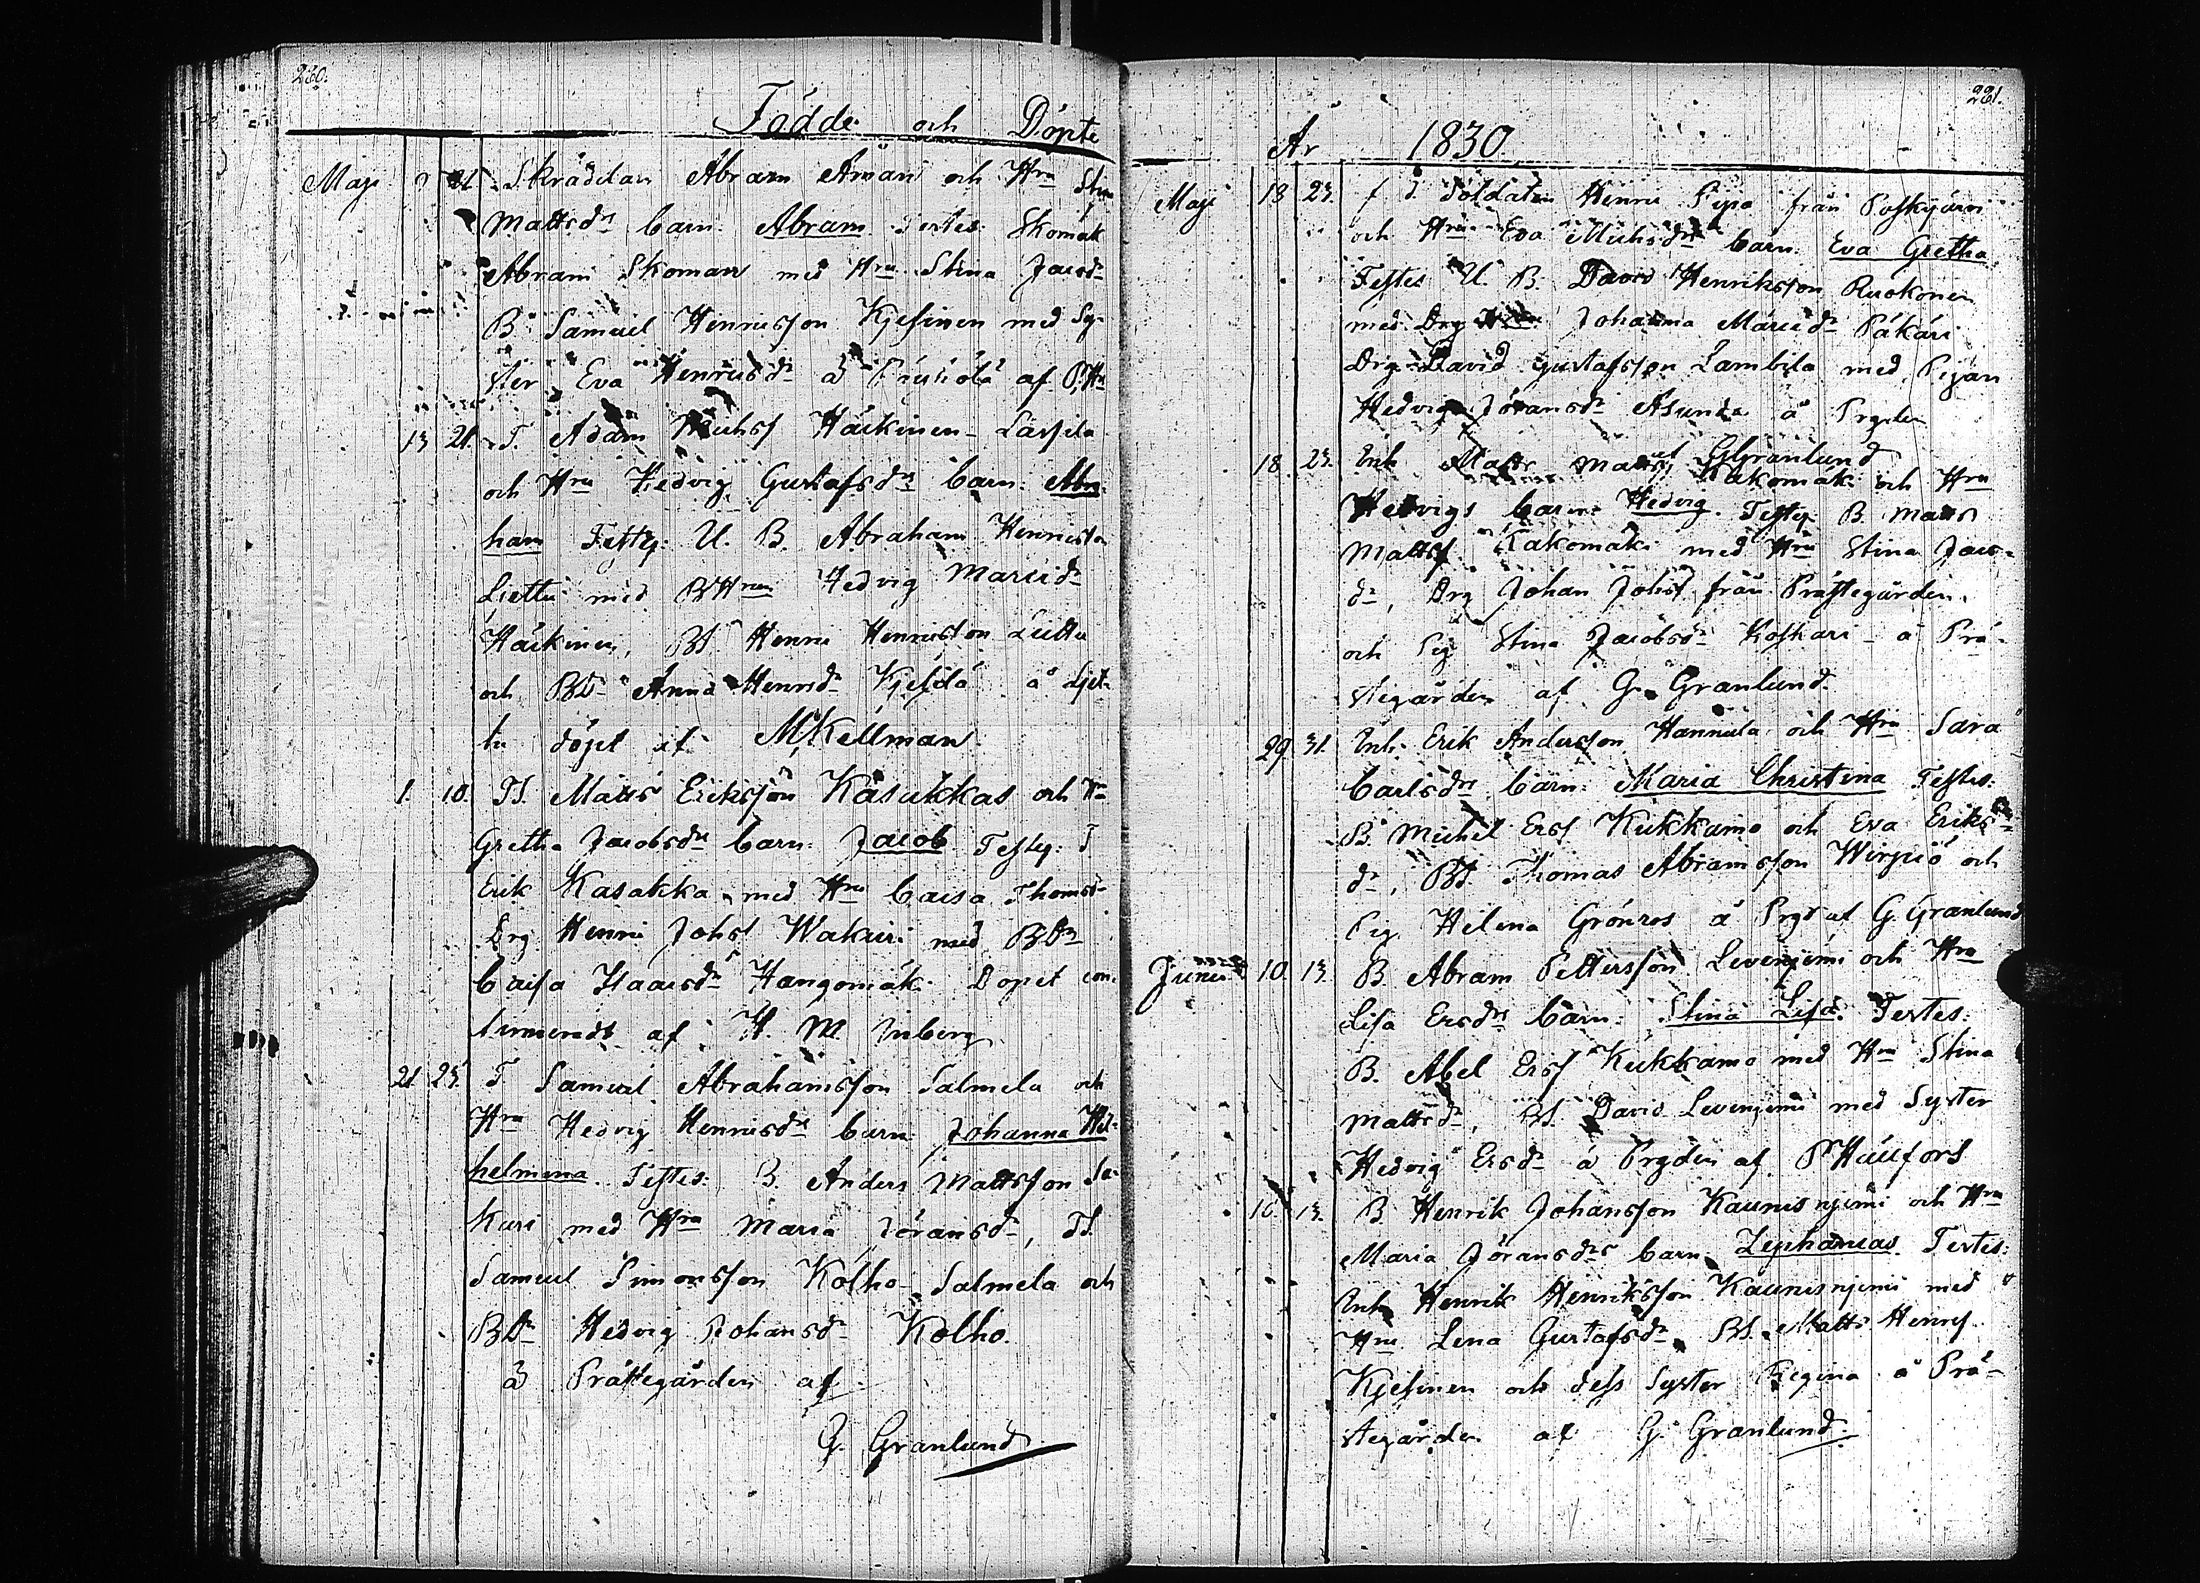 230.
Födde och Döpte
Maji 21. Skräddan Abram Åman och Hru Stina
Mattsdr barn Abram Testes Skomak
Abram Skoman med Hru Stina Jacsdr
B. Samuel Henricsson Kjesinen med Sy-
ster Eva Henricsdr å af P.
13 21. T. Adam Michs Häikinen Lassila
och Hru Hedvig Gustafsdrs barn Abra
ham Testes: U. B. Abraham Henricsson
Liettu med BHrun Hedvig Marcidr
Häikinen, BS. Henric Henricsson Liettu
och BDr Anna Henricdr Kjesilä å Ljet-
tu döpt af M. Kellman.
1. 10. TS. Matts Eriksson Kasukkas och Hru
Gretha Jacobsdrs barn: Jacob Testes: T
Erik Kasakka med Hru Caisa Thomsdr
Drg Henric Johs Wakuri med BDr
Caisa Isaacsdr Hangomäk. Döpet con
firmerades af H. M. Inberg
21 23. T Samuel Abrahamsson Salmela och
Hru Hedvig Henricsdrs barn: Johanna Wil-
helmina. Testes: B. Anders Mattsson Sa-
kari med Hru Maria Jöransdr, TS.
Samuel Simonsson Kolho Salmela och
BDr Hedvig Johansdr Kolho.
å Prästegården af
G. Granlund
231.
År 1830
Maji 18 23. f. d. Soldaten Henric Pipa från Poskjärvi
och Hrus Eva Michsdrs barn. Eva Gretha
Testes U. B. David Henriksson Ruokonen
med Drg Johanna Marcidr Päkäri
Drg. David Gustafsson Lambila med Pigan
Hedvig Jöransdr Asunda å Prgrden
af GGranlund
18. 23. Enh Matts Matts Kakomäki och Hru
Hedvigs barn. Hedvig. Testes B. Matts
Matts Kakomäki med Hru Stina Jacs-
dr, Drg Johan Johs från Prästegården.
och Pig Stina Jacobsdr Koskari å Prä-
stegården af G. Granlund.
29. 31. Enh. Erik Andersson Hannula och Hru Sara
Carlsdrs barn: Maria Christina Testes:
B. Michel Ers Kukkamo och Eva Eriks-
dr, BS. Thomas Abramsson Wirpiö och
Pig Helena Grönros å Prgd af G. Granlund
Junii 10. 13. B. Abram Pettersson Levenjemi och Hru
Lisa Ersdrs barn: Stina Lisa. Testes:
B. Abel Ers Kukkamo med Hru Stina
Mattsdr, BS. David Levenjemi med Syster
Hedvig Ersdr å Prgden af P Häufors
10. 13. B Henrik Johansson Kaunisnjemi och Hru
Maria Jöransdrs barn. Zephanias. Testes:
Enh Henrik Henriksson Kaunisnjemi med
Hru Lena Gustafsdr, BS. Matts Henrs
Kjesinen och dess Syster Regina å Prä-
stegården af G. Granlund.